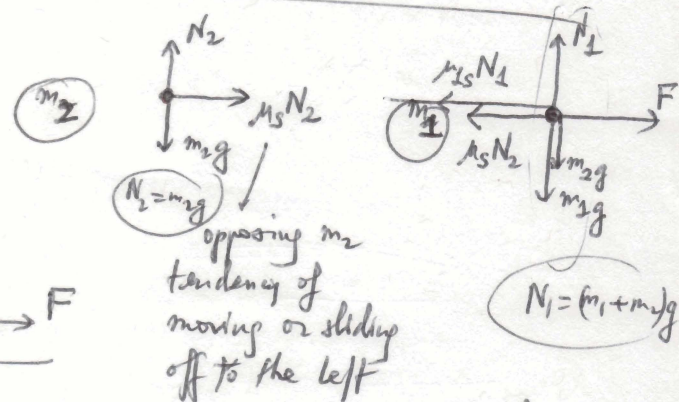 N₂
m₂
μₛN₂
m₂g
N₂ = m₂g
opposing m₂
tendency of
moving or sliding
off to the left
F
N₁
μ₁ₛN₁
F
m₁
μₛN₂
m₂g
m₁g
N₁ = (m₁+m₂)g